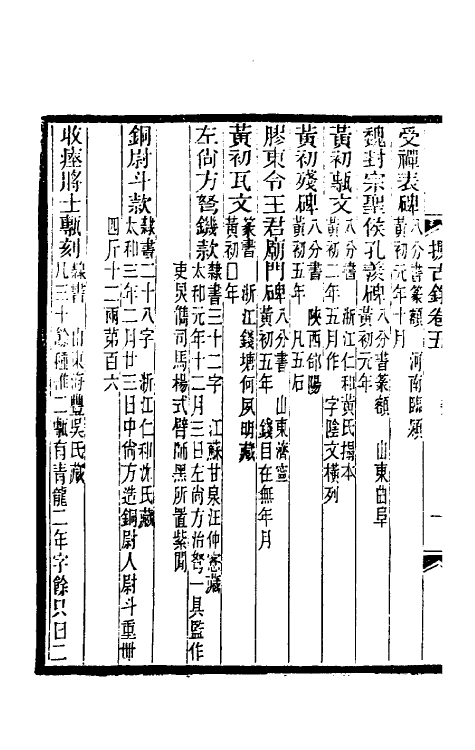 攗古錄卷五
一
受禪表碑 八分書篆額 河南臨潁
黃初元年十月
魏封宗聖侯孔羨碑 八分書篆額 山東曲阜
黃初元年
黃初甎文 八分書 浙江仁和黃氏搨本
黃初二年五月作 字陰文橫列
黃初殘碑 八分書 陝西郃陽
黃初五年 凡五石
膠東令王君廟門碑 八分書 山東濟寧
黃初五年 錢目在無年月
黃初瓦文 篆書 浙江錢塘何夙明藏
黃初囗年
左尙方弩鐖款 隸書三十二字 江蘇甘泉汪仲憲藏
太和元年十二月三日左尙方治弩一具監作
吏吳㒞司馬楊式臂師黑所置紫閒
銅尉斗款 隸書二十八字 浙江仁和沈氏藏
太和三年二月廿三日中尙方造銅尉人尉斗重卌
四斤十二兩第百六
收瘞將士甎刻 隸書 山東海豐吳氏藏
凡三十餘種惟二甎有青龍二年字餘只日二